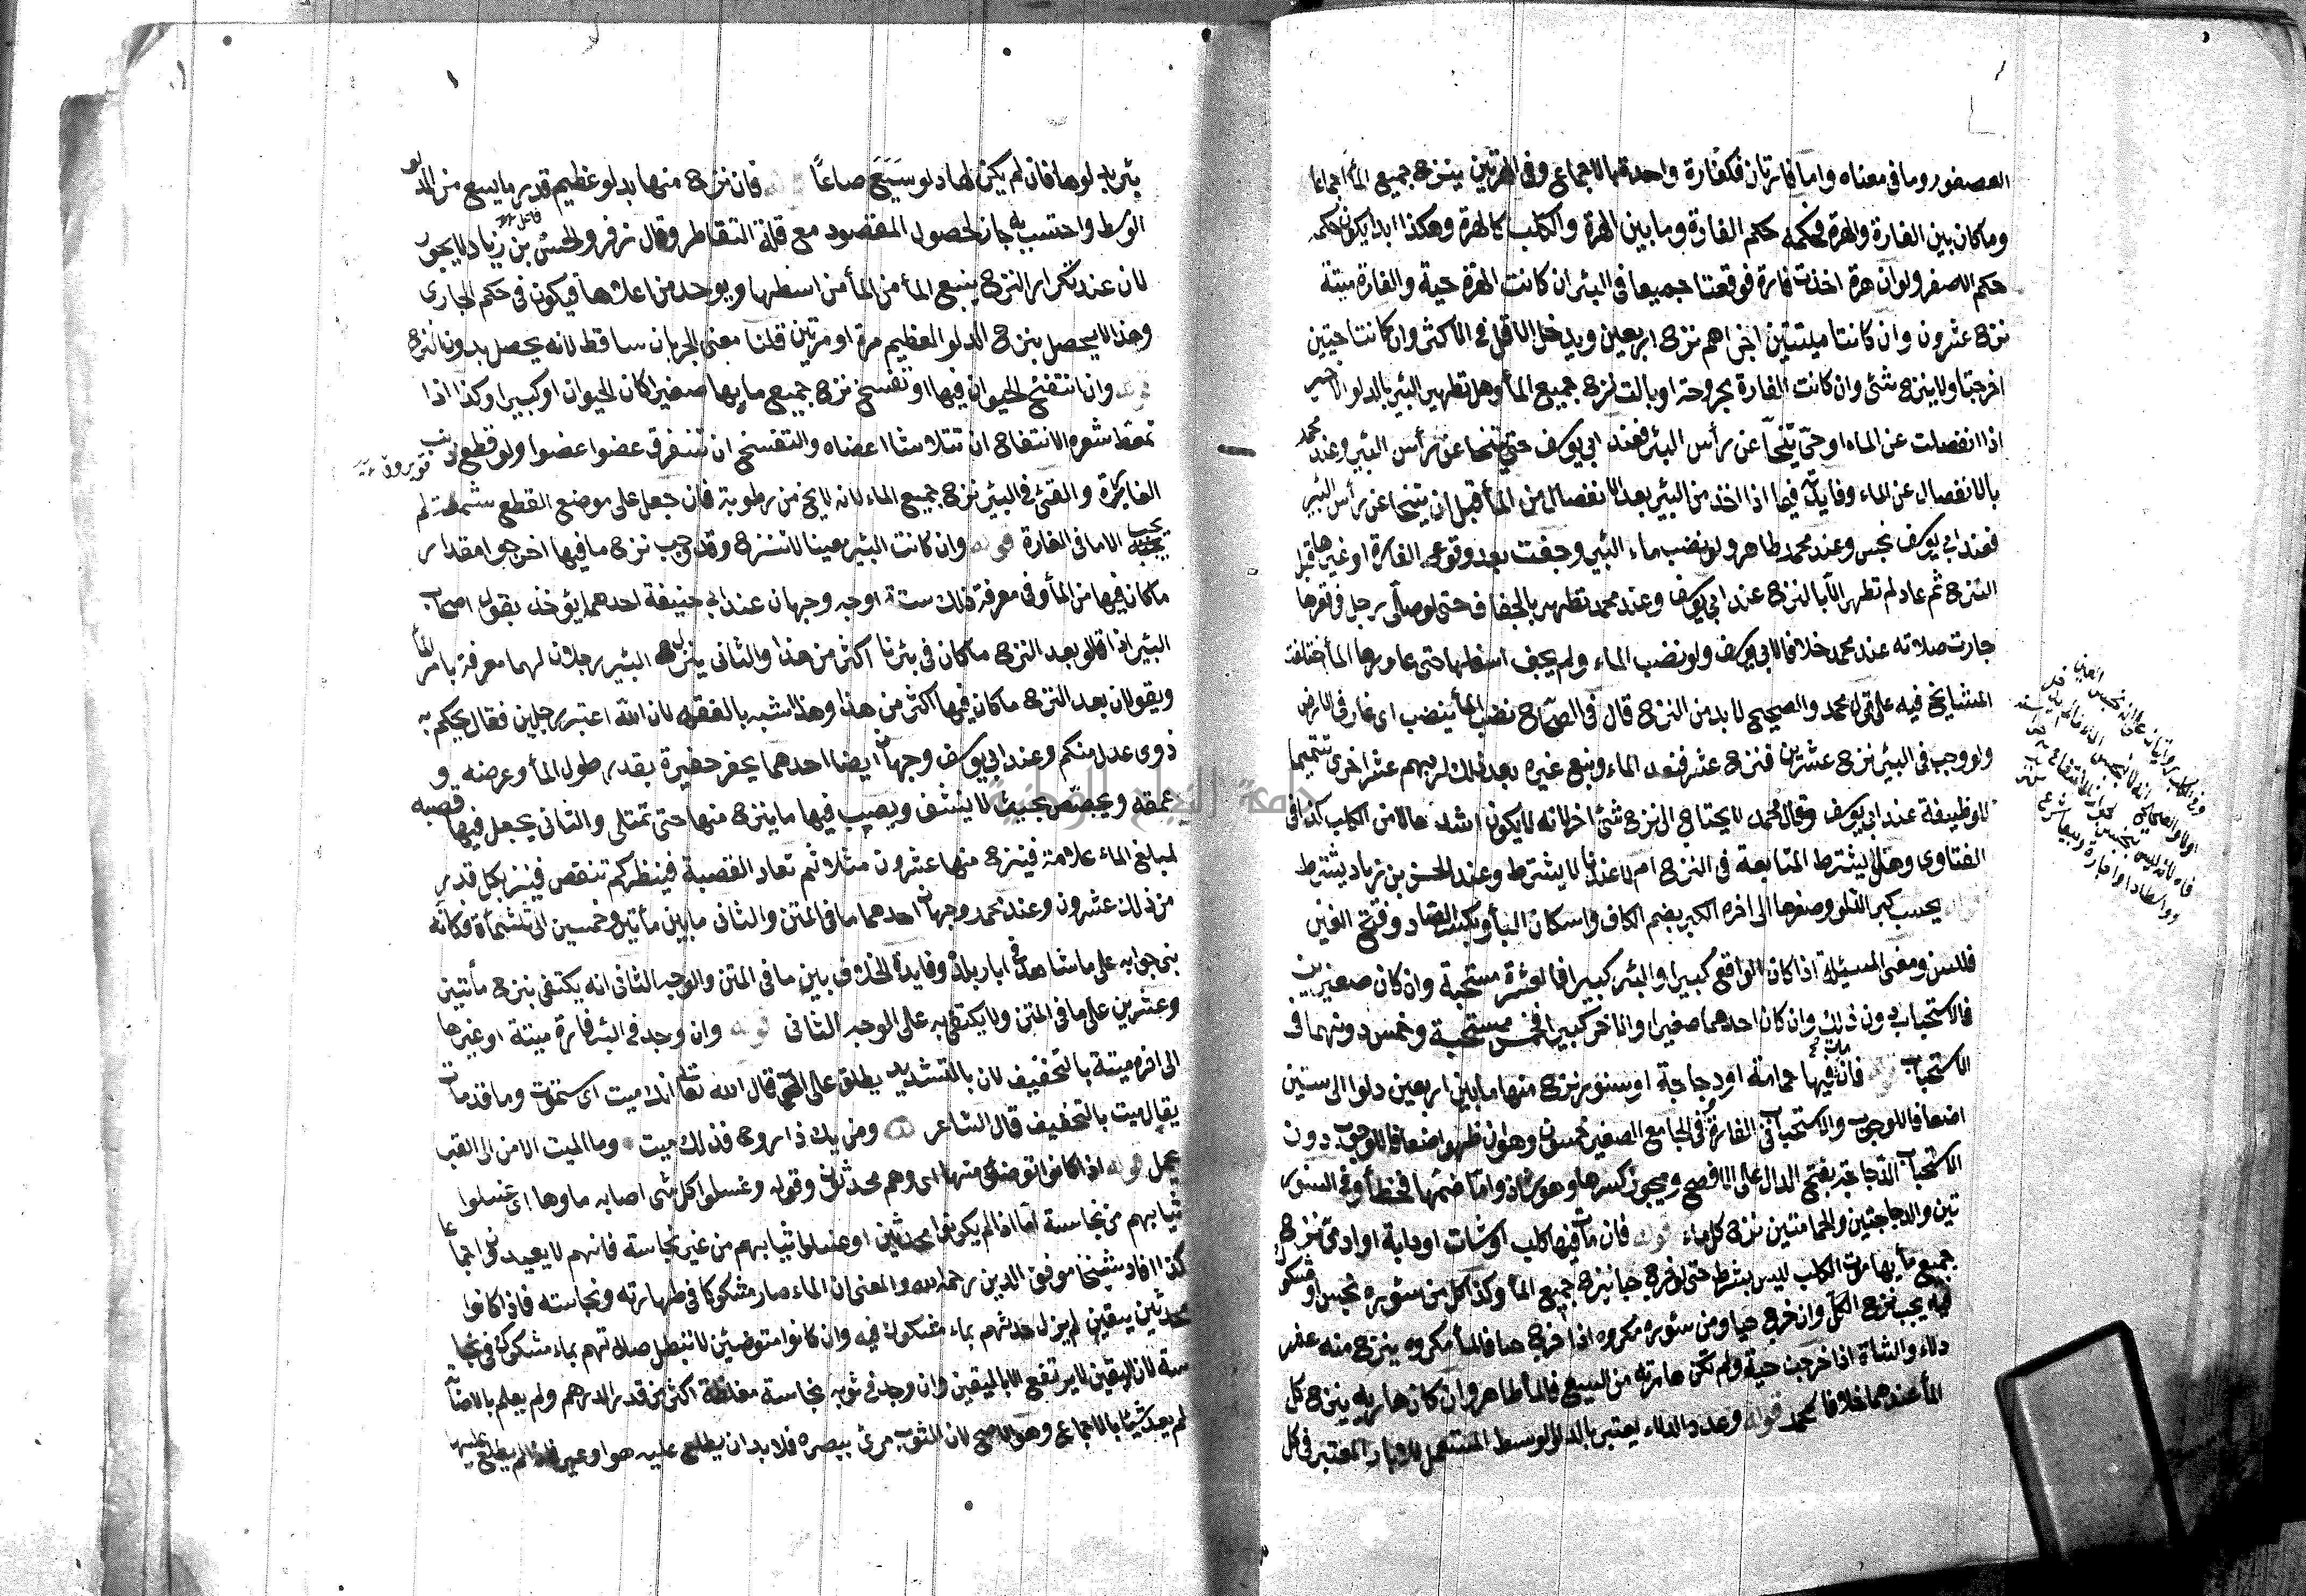 العصفور وما في معناه واما فارتان فكفارة واحدة بالاجماع وفي الهرتين ينزح جميع المأ اجماعا
وما كان بين الفارة والهرة فحكمه حكم الفارة وما بين الهرة والكلب كالهرة وهكذا ابدا يكون حكمه
حكم الاصغر ولو ان هرة اخذت فارة فوقعتا جميعا في البئر ان كانت الهرة حية والفارة ميتة
نزح عشرون وان كانتا ميتتين اجزاهم نزح اربعين ويدخل الاقل في الاكثر وان كانتا حيتين
اخرجتا ولا ينزح شئ وان كانت الفارة مجروحة او بالت نزح جميع المأ وهل تطهير البئر بالدلو الاخير
اذا انفصلت عن الماء او حتي يتنحا عن رأس البئر فعند ابي يوسف حتي يتنحا عن رأس البئر وعند محمد
بالانفصال عن الماء وفايدته فيما اذا اخذ من البئر بعد الانفصال من المأ قبل ان يتنحا عن رأس البئر
فعند ابي يوسف نجس وعند محمد طاهر ولو نضب ماء البئر وجفت بعد وقوع الفارة او غيرها قبل
النزح ثم عاد لم تطهر الا بالنزح عند ابي يوسف وعند محمد تطهر بالجفاف حتى لو صلى رجل في قعرها
جازت صلاته عند محمد خلافا لابي يوسف ولو نضب الماء ولم يجف اسفلها حتى عاودها المأ اختلفت
المشايخ فيه على قول محمد والصحيح لا بد من النزح قال في الصحاح نضب المأ ينضب اى غار في الارض
ولو وجب في البئر نزح عشرين فنزح عشر فنفد الماء ونبع غيره بعد ذلك لزمهم عشر اخرى تتميما
للوظيفة عند ابي يوسف وقال محمد لا يحتاج الى نزح شئ اخر لانه لا يكون اشد حالا من الكلب كذا في
الفتاوى وهل يشترط المتابعة في النزح ام لا عندنا لا يشترط وعند الحسن بن زياد يشترط
بحسب كبر الدلو وصغرها الى اخره الكبر بضم الكاف واسكان البأ وبكسر الصاد وفتح الغين
للسن ومعنى المسئلة اذا كان الواقع كبيرا والبئر كبيرا فالعشرة مستحبة وان كان صغيرين
فالاستحباب دون ذلك وان كان احدهما صغيرا والاخر كبيرا فخمس مستحبة وخمس دونهما في
الاستحباب فان مات فيها حمامة او دجاجة او سنور نزح منها ما بين اربعين دلوا الى ستين
اضعافا للوجوب والاستحباب في الفارة وفي الجامع الصغير خمسون وهوان ظهر اضعافا للوجوب دون
الاستحباب الدجاجة بفتح الدال على الافصح ويجوز كسرها وهو شاذ واما ضمها فخطأ وفي السنور
تين والدجاجتين والحمامتين نزح كل ماء قوله فان مات فيها كلب او شات او دابة او ادمي نزح
جميع مأ يها موت الكلب ليس بشرط حتى لو خرج حيا ينزح جميع المأ وكذا كل من سئوره نجس او مشكوك
فيه يجب نزح الكل وان خرج حيا ومن سئوره مكروه اذا خرج حيا فالمأ مكروه ينزح منه عشر
دلاء والشاة اذا خرجت حية ولم تكن هاربة من السبع فالمأ طاهر وان كان هاربة ينزح كل
المأ عندهما خلافا لمحمد قوله وعدد الدلاء يعتبر بالدلو الوسط المستعمل للابار المعتبر في كل
بئر بدلوها فان لم يكن لها دلو سَيَع صاعاً فان نزح منها بدلو عظيم قدر ما يسع من الدلو
الوسط واحتسب به جاز لحصول المقصود مع قلة التقاطر وقال زفر والحسن بن زياد لا يجوز
لان عند تكرار النزح ينبع المأ من المأ من اسفلها ويوخذ من اعلاها فيكون في حكم الجارى
وهذا لا يحصل بنزح الدلو العظيم مرة او مرتين قلنا معنى الجريان ساقط لانه يحصل بدون النزح
قوله وان انتفخ الحيوان فيها او تفسخ نزح جميع ما بها صغيرا كان الحيوان او كبيرا وكذا اذا
تمعط شعره الانتفاخ ان تتلاشا اعضاه والتفسخ ان تتفرق عضوا عضوا ولو قطع ذنب
الفارة والقي في البئر نزح جميع الماء لانه لا يخ من رطوبة فان جعل على موضع القطع شمعة لم
يجب الا ما في الفارة قوله وان كانت البئر معينا لا تنزح وقد وجب نزح ما فيها اخرجوا مقدار
ما كان فيها من المأ وفي معرفة ذلك ستة اوجه وجهان عند ابي حنيفة احدهما يؤخذ بقول اصحاب
البئر اذا قالو بعد النزح ما كان في بئرنا اكثر من هذا والثاني ينزل البئر رجلان لهما معرفة بامر المأ
ويقولان بعد النزح ما كان فيها اكثر من هذا وهذا اشبه بالفقه لان الله اعتبر رجلين فقال يحكم به
ذوى عدل منكم وعند ابي يوسف وجهان ايضا احدهما يحفر حفيرة بقدر طول المأ وعرضه و
عمقه ويجصص بحيث لا ينشف ويصب فيها ما ينزح منها حتى تمتلى والثاني يجعل فيها قصبه
لمبلغ الماء علامة فينزح منها عشرون مثلا ثم تعاد القصبة فينظر كم تنقص فينزح بكل قدر
من ذلك عشرون وعند محمد وجهان احدهما ما في المتن والثاني ما بين مأتين وخمسين الى ثلثمأة فكانه
بنى جوابه على ما شاهد في ابار بلده وفايدة الخلاف بين ما في المتن والوجه الثاني انه يكتفى بنزح مأتين
وعشرين على ما في المتن ولا يكتفى به على الوجه الثاني قوله وان وجد في البئر فارة ميتة او غيرها
الى اخره ميتة بالتخفيف لان بالتشديد يطلق على الحي قال الله تعا انك ميت اى ستموت وما قد مات
يقال ميت بالتخفيف قال الشاعر ومن يك ذا روح فذلك ميت وما الميت الا من الى القبر
يحمل قوله اذا كانوا توضئو منها اى وهم محدثون وقوله وغسلوا كل شى اصابه ماوها اى غسلوا
ثيابهم من نجاسة اما اذا لم يكونوا محدثين او غسلوا ثيابهم من غير نجاسة فانهم لا يعيدون اجماعا
كذا افاد شيخنا موفق الدين رحمه الله والمعنى ان الماء صار مشكوكا في طهارته ونجاسته فاذا كانوا
محدثين بيقين لم يزل حدثهم بماء مشكوك فيه وان كانوا متوضئين لا تبطل صلاتهم بماء مشكوك في نجا
سة لان اليقين لا يرتفع الا باليقين وان وجد في ثوبه نجاسة مغلظة اكثر من قدر الدرهم ولم يعلم بالاصابة
لم يعد شيئا بالاجماع وهو الاصح لان الثوب مرئ ببصره فلا بد ان يطلع عليه هو او غيره فاذا لم يطلع عليها